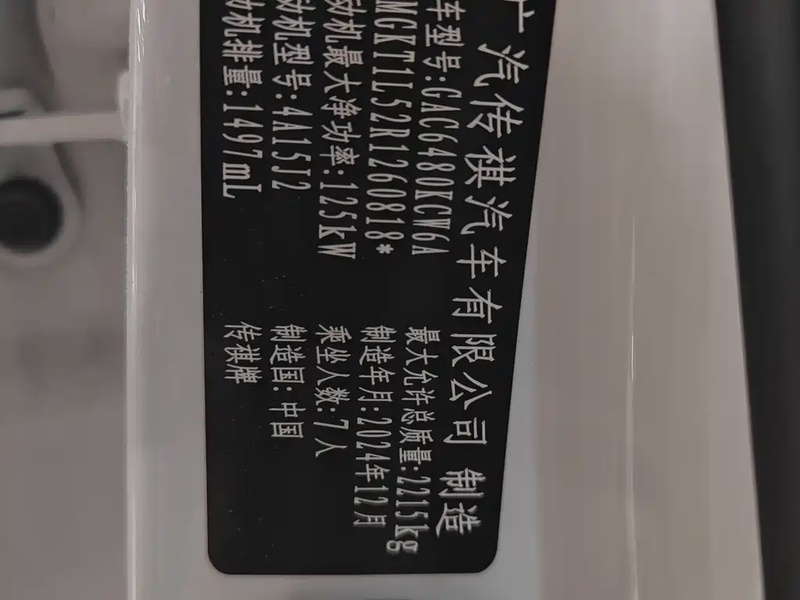 广汽传祺汽车有限公司 制造
车型号:GAC6480KCW6A 最大允许总质量:2215kg
MGKT1L52R1260818* 制造年月:2024年12月
动机最大净功率:125kW 乘坐人数:7人
动机型号:4A15J2 制造国:中国
动机排量:1497mL 传祺牌